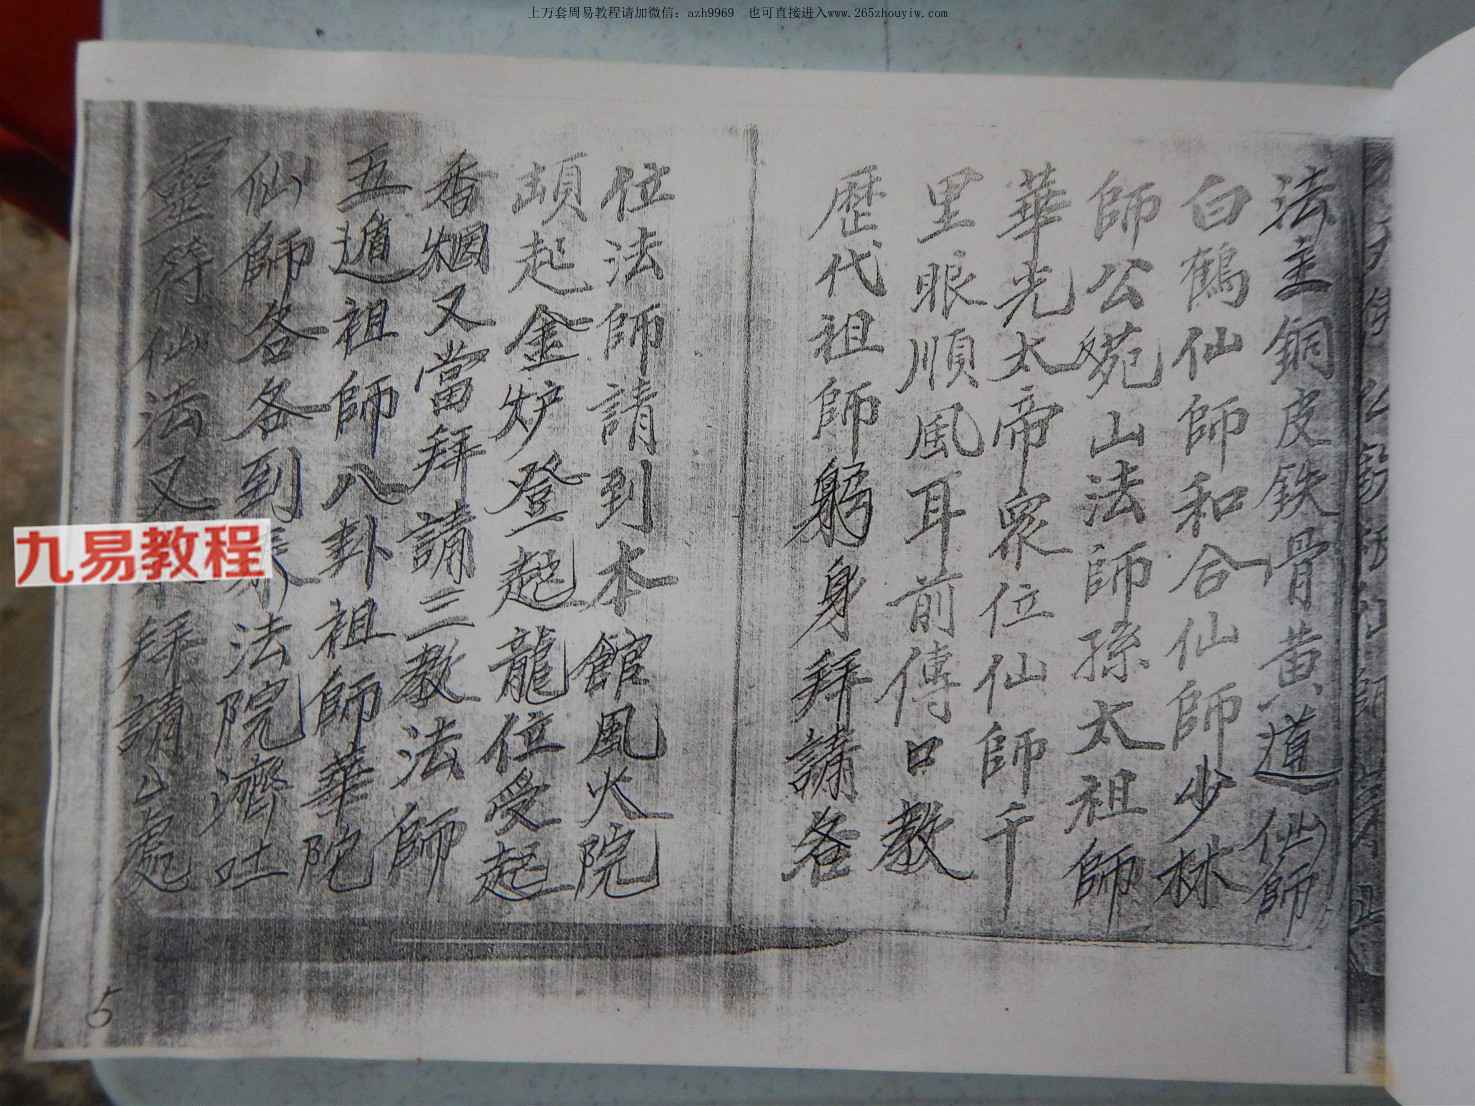 上万套周易教程请加微信：azh9969　也可直接进入www.265zhouyiw.com
法主銅皮铁骨黄道仙師
白鶴仙師和合仙師少林
師公菀山法師孫太祖師
華光太帝衆位仙師千
里眼順風耳前傳口教
歷代祖師躬身拜請各
位法師請到本館風火院
起金炉登起龍位受起
香烟又當拜請三教法師
五遁祖師八卦祖師華院
仙師各各到法院濟吐
靈符仙法又拜請山處
九易教程
5